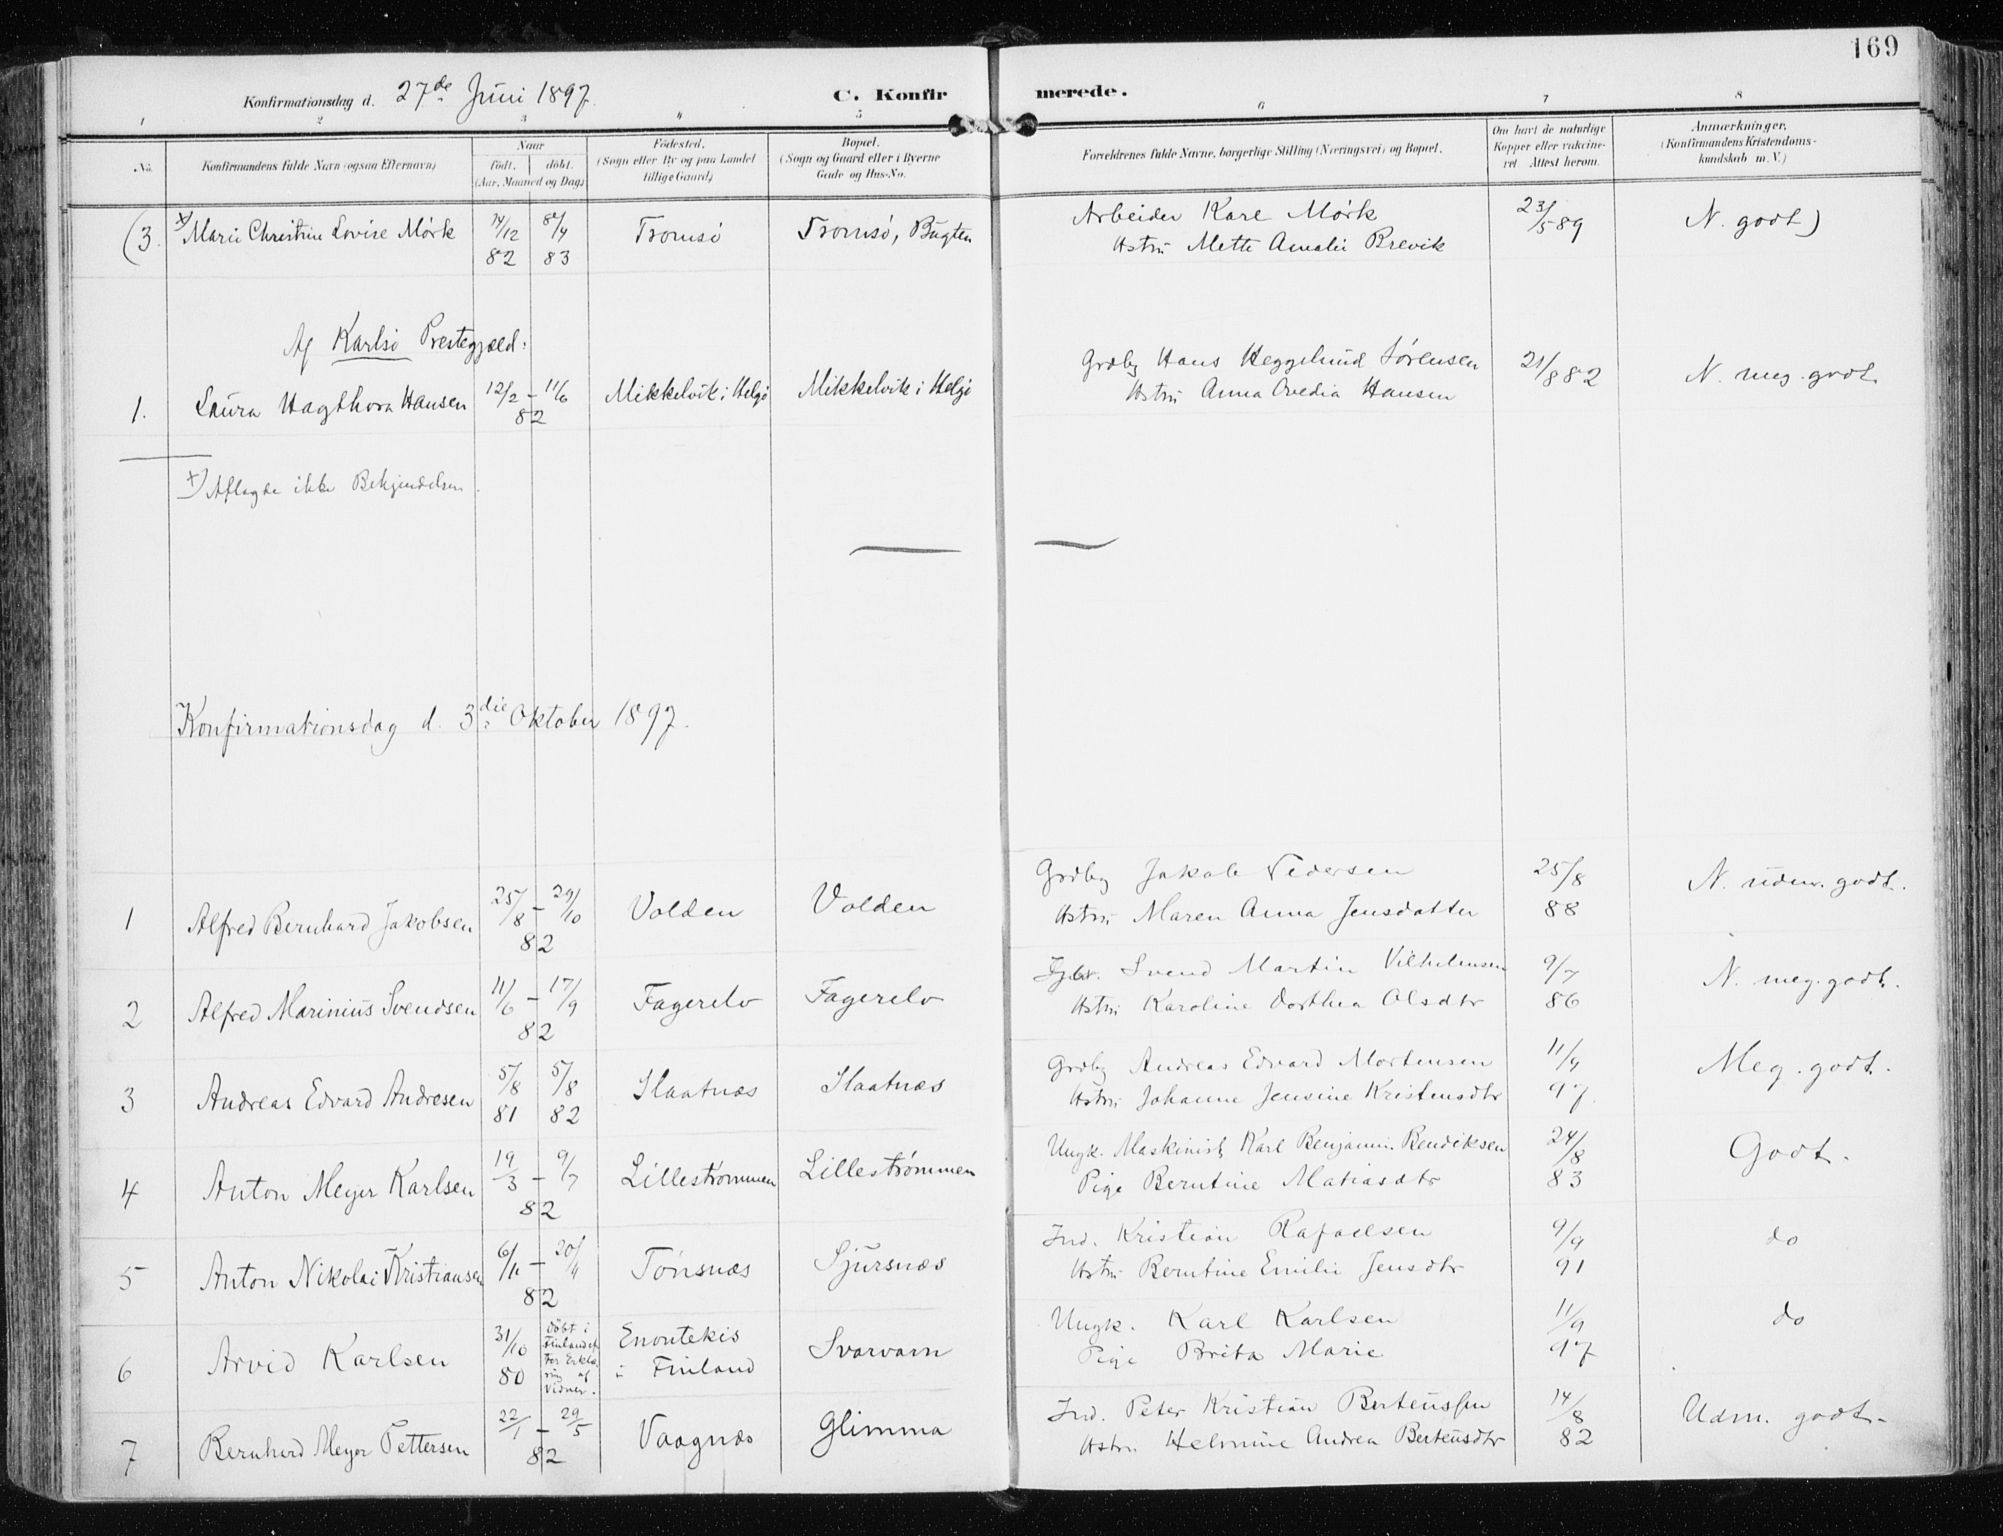 169
Konfirmationsdag d. 27de Juni 1897. C. Konfir merede.
1 2 3 4 5 6 7 8
No. Konfirmandens fulde Navn (ogsaa Efternavn) Naar födt, döbt. (Aar, Maaned og Dag) Födested. (Sogn eller By og paa Landet tillige Gaard) Bopæl. (Sogn og Gaard eller i Byerne Gade og Hus-No. Forældrenes fulde Navne, borgerlige Stilling (Næringsvei) og Bopæl. Om havt de naturlige Kopper eller vakcineret. Attest herom. Anmærkninger. (Konfirmandens Kristendomskundskab m. V.)
(3. x) Marie Christine Lovise Mørk 14/12 82 8/4 83 Tromsö Tromsö, Bugten Arbeider Karl Mørk 23/5 89 N. godt)
Hstru Mette Amalie Brevik
Af Karlsö Prestegjæld:
1. Laura Hagthora Hansen 12/2 - 11/6 82 Mikkelvik i Helgö Mikkelvik i Helgö Grdbg Hans Heggelund Sørensen 21/8 82 N. meg. godt
Hstru Anna Ovedia Hansen
x) Aflagde ikke Bekjendelsen.
Konfirmationsdag d. 3die Oktober 1897.
1 Alfred Bernhard Jakobsen 25/8 - 29/10 82 Volden Volden Grdbg Jakob Pedersen 25/8 88 N. udm. godt.
Hstru Maren Anna Jensdatter
2 Alfred Marinius Svendsen 11/6 - 17/9 82 Fagerelv Fagerelv Svend Martin Vilhelmsen 9/7 86 N. meg. godt.
Hstru Karoline Dorthea Olsdtr
3 Andreas Edvard Andresen 5/8 81 5/8 82 Slaatnæs Slaatnæs Grdbg Andreas Edvard Mortensen 11/9 97. Meg. godt.
Hstru Johanne Jensine Kristensdtr
4 Anton Meyer Karlsen 19/3 - 9/7 82 Lillestrømmen Lillestrømmen Ungk. Maskinist Karl Benjamin Bendiksen 24/8 83 Godt.
Pige Berntine Matiasdtr
5 Anton Nikolai Kristiansen 6/11 - 20/11 82 Tönsnæs Sjursnæs Ind. Kristian Rafaelsen 9/9 91 do
Hstru Berntine Emilie Jensdtr
6 Arvid Karlsen 31/10 80 Döbt i Finland ef- ter Erklæ- ring af Vidner. Enontekis i Finland Svarvarn Ungk. Karl Karlsen 11/9 97 do
Pige Brita Marie
7 Bernhard Meyer Pettersen 22/1 - 29/5 82 Vaagnæs Glimma Ind. Peter Kristian Berteussen 14/8 82 Udm. godt.
Hstru Helmine Andrea Berteusdtr